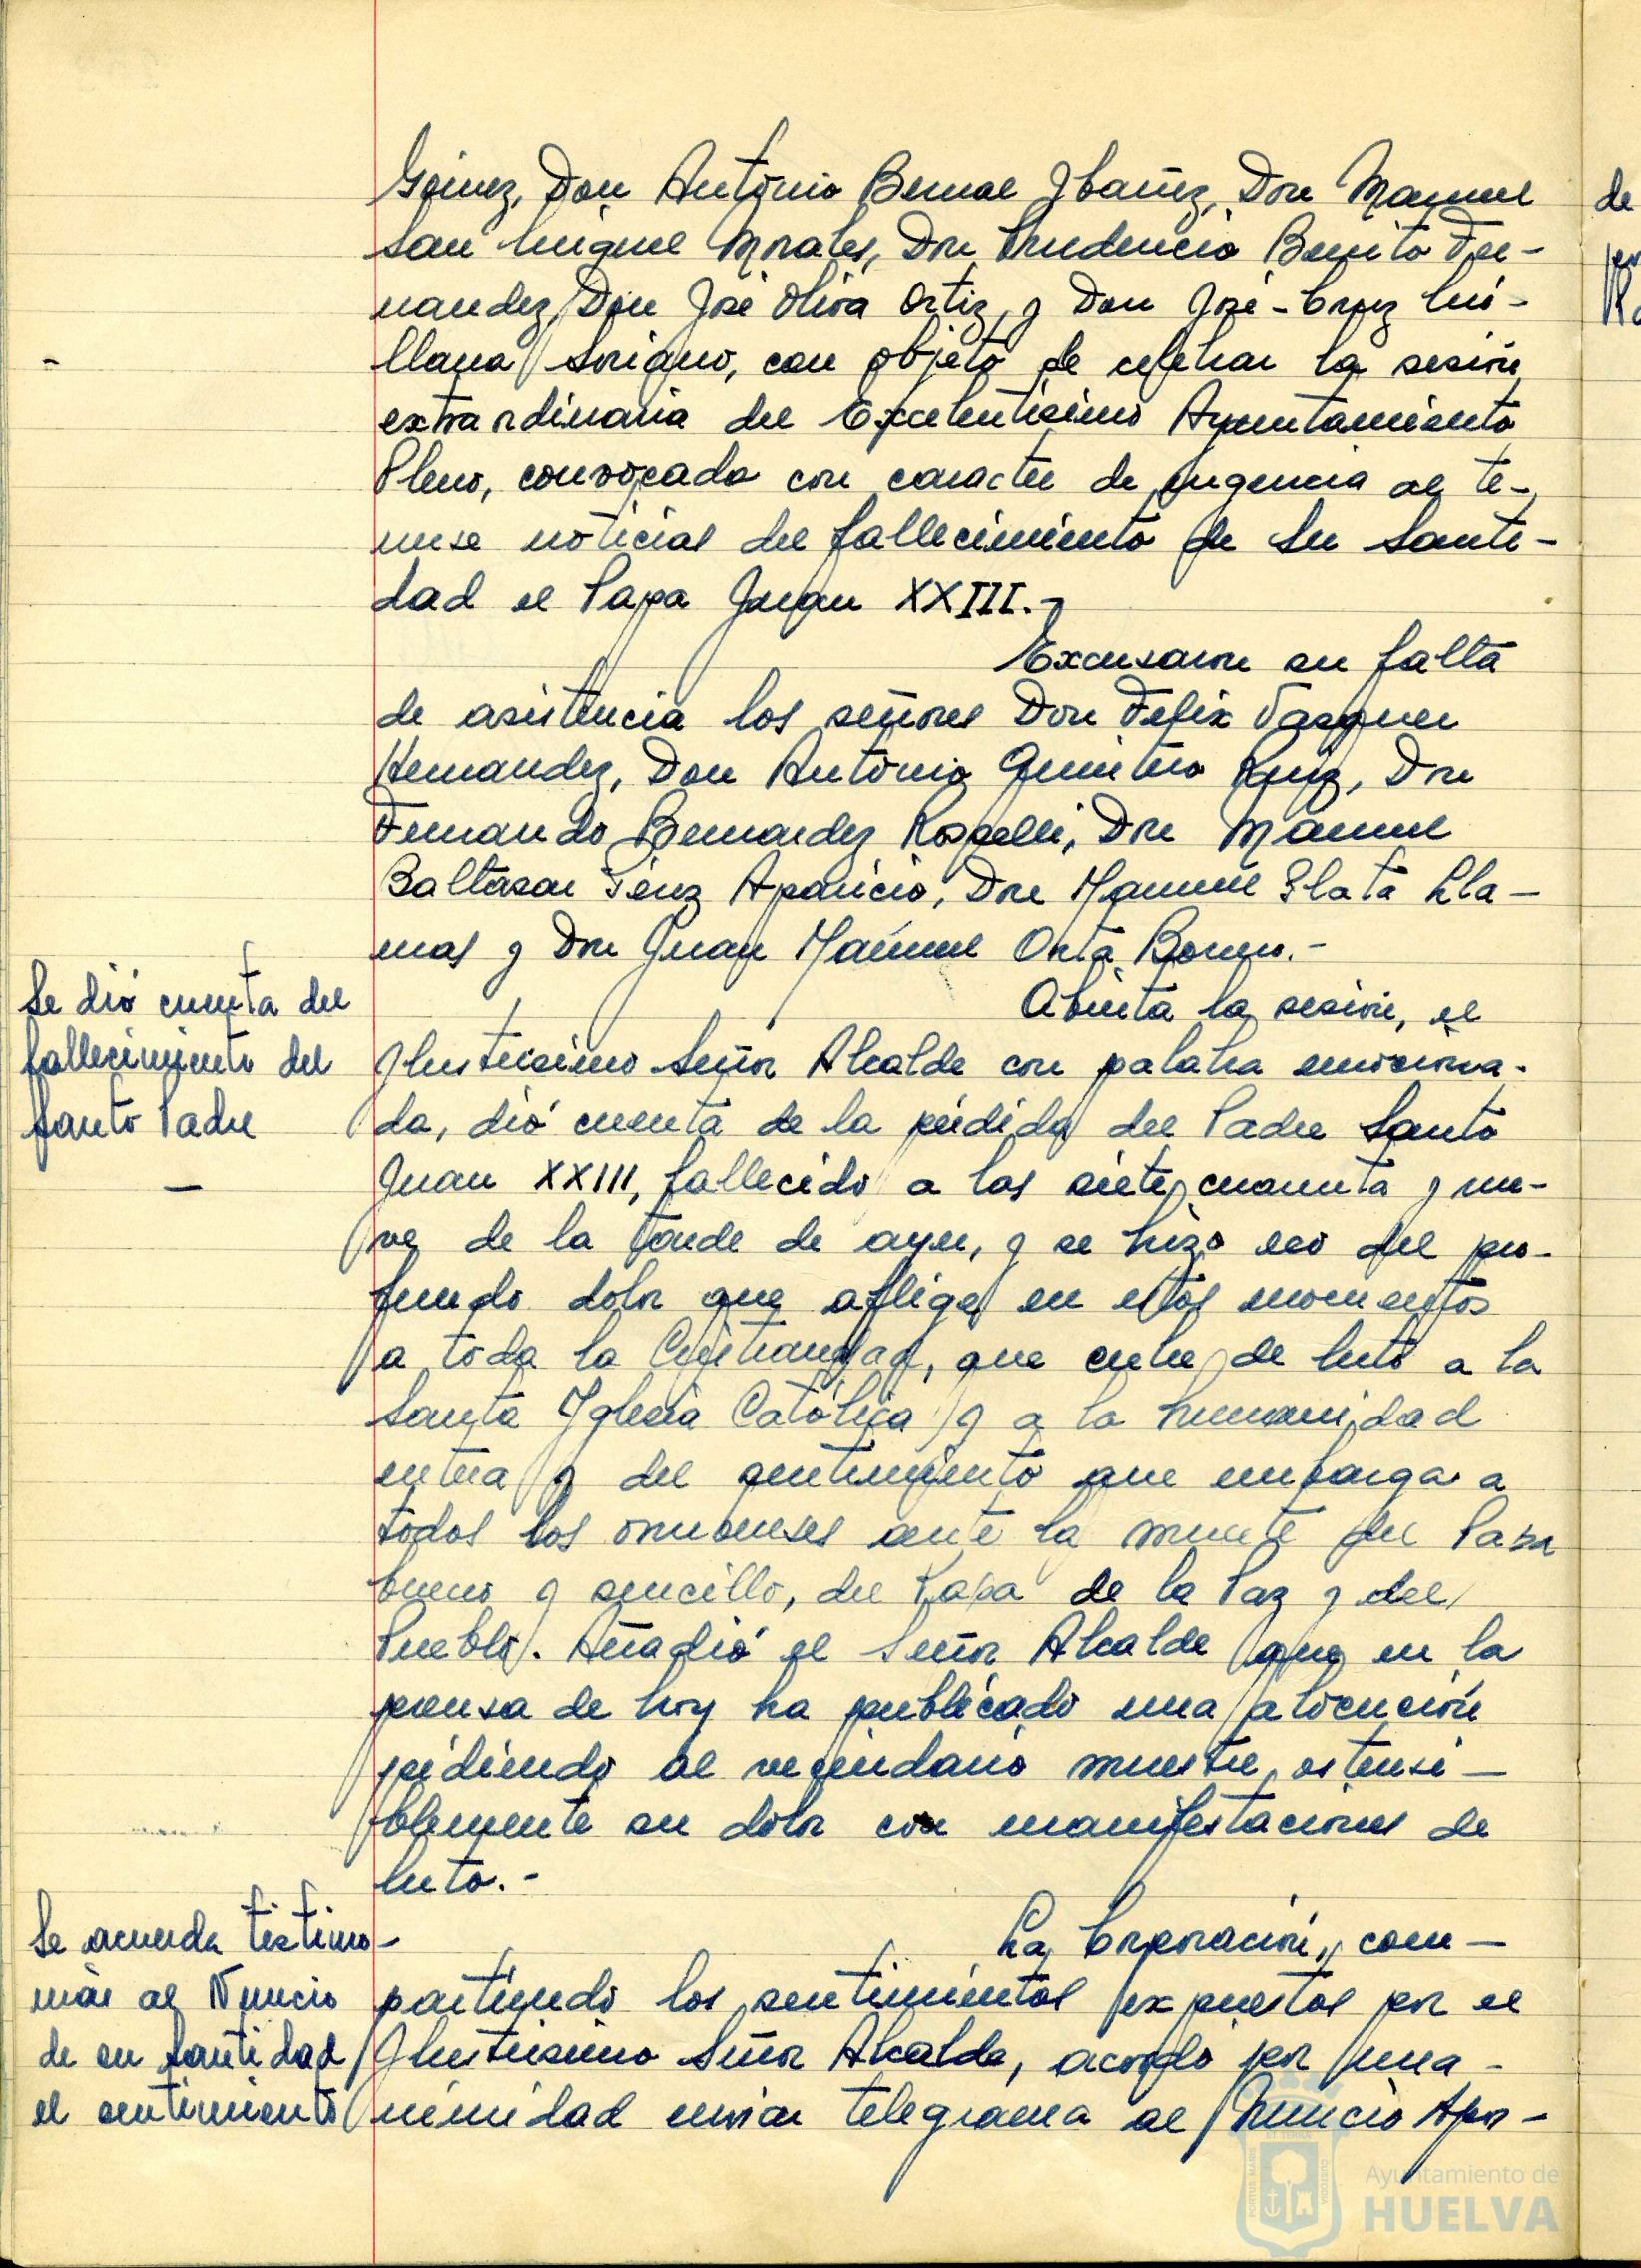 Gómez, Don Antonio Bernal Ibañez, Don Manuel
San Miguel Morales, Don Prudencio Benito Fer-
nandez, Don José Oliva Ortiz, y Don José-Cruz
llana Soriano, con objeto de celebrar la sesión
extraordinaria del Excelentísimo Ayuntamiento
Pleno, convocada con caracter de urgencia al te-
nerse noticias del fallecimiento de Su Santi-
dad el Papa Juan XXIII.-
Excusaron su falta
de asistencia los señores Don Felix Vazquez
Hernandez, Don Antonio Quintero Ruiz, Don
Fernando Bernardez Rospelli, Don Manuel
Baltasar Perez Aparicio, Don Manuel Plata Lla-
mas y Don Juan Manuel Orta Borrero.-
Se dió cuenta del
fallecimiento del
Santo Padre
—
Abierta la sesión, el
Ilustrisimo Señor Alcalde con palabra emociona-
da, dió cuenta de la pérdida del Padre Santo
Juan XXIII, fallecido a las siete, cuarenta y nue-
ve de la tarde de ayer, y se hizo eco del pro-
fundo dolor que aflige en estos momentos
a toda la Cristiandad, que cubre de luto a la
Santa Iglesia Católica y a la humanidad
entera y del sentimiento que embarga a
todos los onubenses ante la muerte del Papa
bueno y sencillo, del Papa de la Paz y del
Pueblo. Añadió el Señor Alcalde que en la
prensa de hoy ha publicado una alocución
pidiendo al vecindario muestre ostensi-
blemente su dolor con manifestaciones de
luto.-
Se acuerda testimo-
niar al Nuncio
de su Santidad
el sentimiento
La Corporación, com-
partiendo los sentimientos expuestos por el
Ilustrisimo Señor Alcalde, acordó por una-
nimidad enviar telegrama al Nuncio Apos-
de
Ayuntamiento de
HUELVA